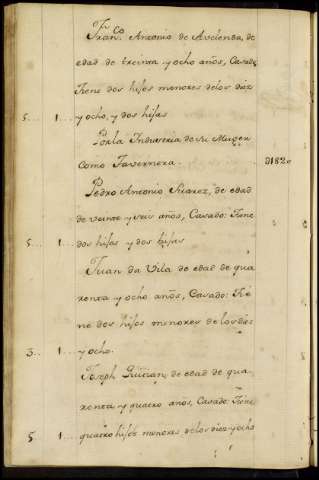 Fran.co Antonio de Avelenda, de
edad de treinta y ocho años, Casado,
Tiene dos hijos menores delos diez
5... 1... y ocho, y dos hijas
Por la Industria de su Muger
Como Tavernera. 0182
Pedro Antonio Suarez, de edad
de veinte y seis años, Casado: Tiene
5... 1... dos hijas y dos hijas
Juan da Vila de edad de qua
renta y ocho años, Casado: Tie
ne dos hijos menores de los diez
3... 1... y ocho.
Joseph Guitian, de edad de qua
renta y quatro años, Casado: Tiene
5 1... quatro hijos menores delos diez y ocho